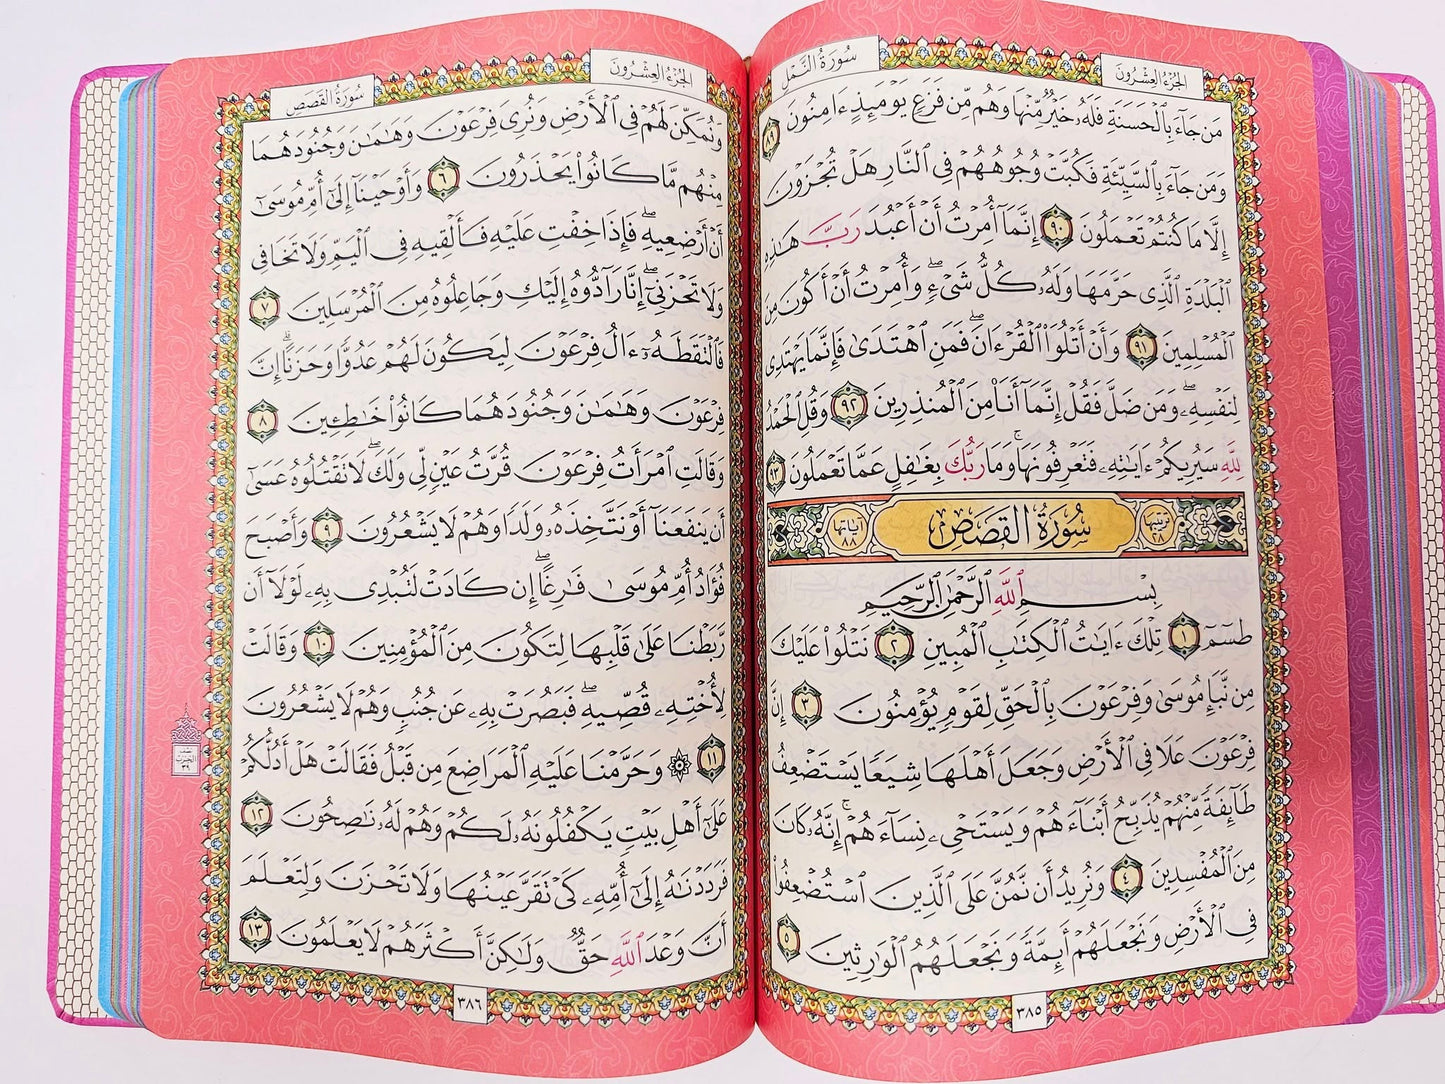 الجُزءُ العِشرُونَ
سُورَةُ النَّمْلِ
مَن جَآءَ بِٱلْحَسَنَةِ فَلَهُۥ خَيْرٌ مِّنْهَا وَهُم مِّن فَزَعٍ يَوْمَئِذٍ ءَامِنُونَ ٨٩
وَمَن جَآءَ بِٱلسَّيِّئَةِ فَكُبَّتْ وُجُوهُهُمْ فِى ٱلنَّارِ هَلْ تُجْزَوْنَ
إِلَّا مَا كُنتُمْ تَعْمَلُونَ ٩٠ إِنَّمَآ أُمِرْتُ أَنْ أَعْبُدَ رَبَّ هَٰذِهِ
ٱلْبَلْدَةِ ٱلَّذِى حَرَّمَهَا وَلَهُۥ كُلُّ شَىْءٍ ۖ وَأُمِرْتُ أَنْ أَكُونَ مِنَ
ٱلْمُسْلِمِينَ ٩١ وَأَنْ أَتْلُوَا۟ ٱلْقُرْءَانَ ۖ فَمَنِ ٱهْتَدَىٰ فَإِنَّمَا يَهْتَدِى
لِنَفْسِهِۦ ۖ وَمَن ضَلَّ فَقُلْ إِنَّمَآ أَنَا۠ مِنَ ٱلْمُنذِرِينَ ٩٢ وَقُلِ ٱلْحَمْدُ
لِلَّهِ سَيُرِيكُمْ ءَايَٰتِهِۦ فَتَعْرِفُونَهَا ۚ وَمَا رَبُّكَ بِغَٰفِلٍ عَمَّا تَعْمَلُونَ ٩٣
ترتيبها ٢٨ سُورَةُ القَصَصِ آياتها ٨٨
بِسْمِ ٱللَّهِ ٱلرَّحْمَٰنِ ٱلرَّحِيمِ
طسٓمٓ ١ تِلْكَ ءَايَٰتُ ٱلْكِتَٰبِ ٱلْمُبِينِ ٢ نَتْلُوا۟ عَلَيْكَ
مِن نَّبَإِ مُوسَىٰ وَفِرْعَوْنَ بِٱلْحَقِّ لِقَوْمٍ يُؤْمِنُونَ ٣ إِنَّ
فِرْعَوْنَ عَلَا فِى ٱلْأَرْضِ وَجَعَلَ أَهْلَهَا شِيَعًا يَسْتَضْعِفُ
طَآئِفَةً مِّنْهُمْ يُذَبِّحُ أَبْنَآءَهُمْ وَيَسْتَحْىِۦ نِسَآءَهُمْ ۚ إِنَّهُۥ كَانَ
مِنَ ٱلْمُفْسِدِينَ ٤ وَنُرِيدُ أَن نَّمُنَّ عَلَى ٱلَّذِينَ ٱسْتُضْعِفُوا۟
فِى ٱلْأَرْضِ وَنَجْعَلَهُمْ أَئِمَّةً وَنَجْعَلَهُمُ ٱلْوَٰرِثِينَ ٥
٣٨٥
الجُزءُ العِشرُونَ
سُورَةُ القَصَصِ
وَنُمَكِّنَ لَهُمْ فِى ٱلْأَرْضِ وَنُرِىَ فِرْعَوْنَ وَهَٰمَٰنَ وَجُنُودَهُمَا
مِنْهُم مَّا كَانُوا۟ يَحْذَرُونَ ٦ وَأَوْحَيْنَآ إِلَىٰٓ أُمِّ مُوسَىٰٓ
أَنْ أَرْضِعِيهِ ۖ فَإِذَا خِفْتِ عَلَيْهِ فَأَلْقِيهِ فِى ٱلْيَمِّ وَلَا تَخَافِى
وَلَا تَحْزَنِىٓ ۖ إِنَّا رَآدُّوهُ إِلَيْكِ وَجَاعِلُوهُ مِنَ ٱلْمُرْسَلِينَ ٧
فَٱلْتَقَطَهُۥٓ ءَالُ فِرْعَوْنَ لِيَكُونَ لَهُمْ عَدُوًّا وَحَزَنًا ۗ إِنَّ
فِرْعَوْنَ وَهَٰمَٰنَ وَجُنُودَهُمَا كَانُوا۟ خَٰطِـِٔينَ ٨
وَقَالَتِ ٱمْرَأَتُ فِرْعَوْنَ قُرَّتُ عَيْنٍ لِّى وَلَكَ ۖ لَا تَقْتُلُوهُ عَسَىٰٓ
أَن يَنفَعَنَآ أَوْ نَتَّخِذَهُۥ وَلَدًا وَهُمْ لَا يَشْعُرُونَ ٩ وَأَصْبَحَ
فُؤَادُ أُمِّ مُوسَىٰ فَٰرِغًا ۖ إِن كَادَتْ لَتُبْدِى بِهِۦ لَوْلَآ أَن
رَّبَطْنَا عَلَىٰ قَلْبِهَا لِتَكُونَ مِنَ ٱلْمُؤْمِنِينَ ١٠ وَقَالَتْ
لِأُخْتِهِۦ قُصِّيهِ ۖ فَبَصُرَتْ بِهِۦ عَن جُنُبٍ وَهُمْ لَا يَشْعُرُونَ
١١ ۞ وَحَرَّمْنَا عَلَيْهِ ٱلْمَرَاضِعَ مِن قَبْلُ فَقَالَتْ هَلْ أَدُلُّكُمْ
عَلَىٰٓ أَهْلِ بَيْتٍ يَكْفُلُونَهُۥ لَكُمْ وَهُمْ لَهُۥ نَٰصِحُونَ ١٢
فَرَدَدْنَٰهُ إِلَىٰٓ أُمِّهِۦ كَىْ تَقَرَّ عَيْنُهَا وَلَا تَحْزَنَ وَلِتَعْلَمَ
أَنَّ وَعْدَ ٱللَّهِ حَقٌّ وَلَٰكِنَّ أَكْثَرَهُمْ لَا يَعْلَمُونَ ١٣
نصف
الحزب
٣٩
٣٨٦